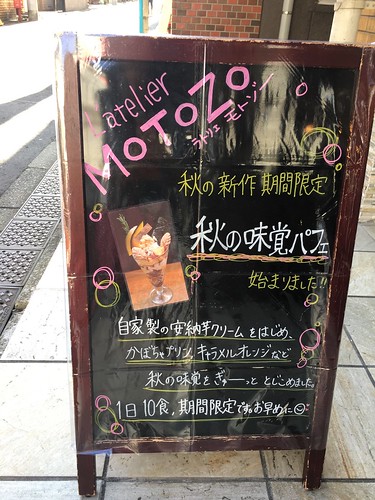 L'atelier
MOTOZO
ラトリエ モトゾー
秋の新作期間限定
秋の味覚パフェ
始まりました!!
自家製の安納芋クリームをはじめ、
かぼちゃプリン、キャラメルオレンジなど
秋の味覚をぎゅーっと とじこめました。
1日10食、期間限定ですお早めに